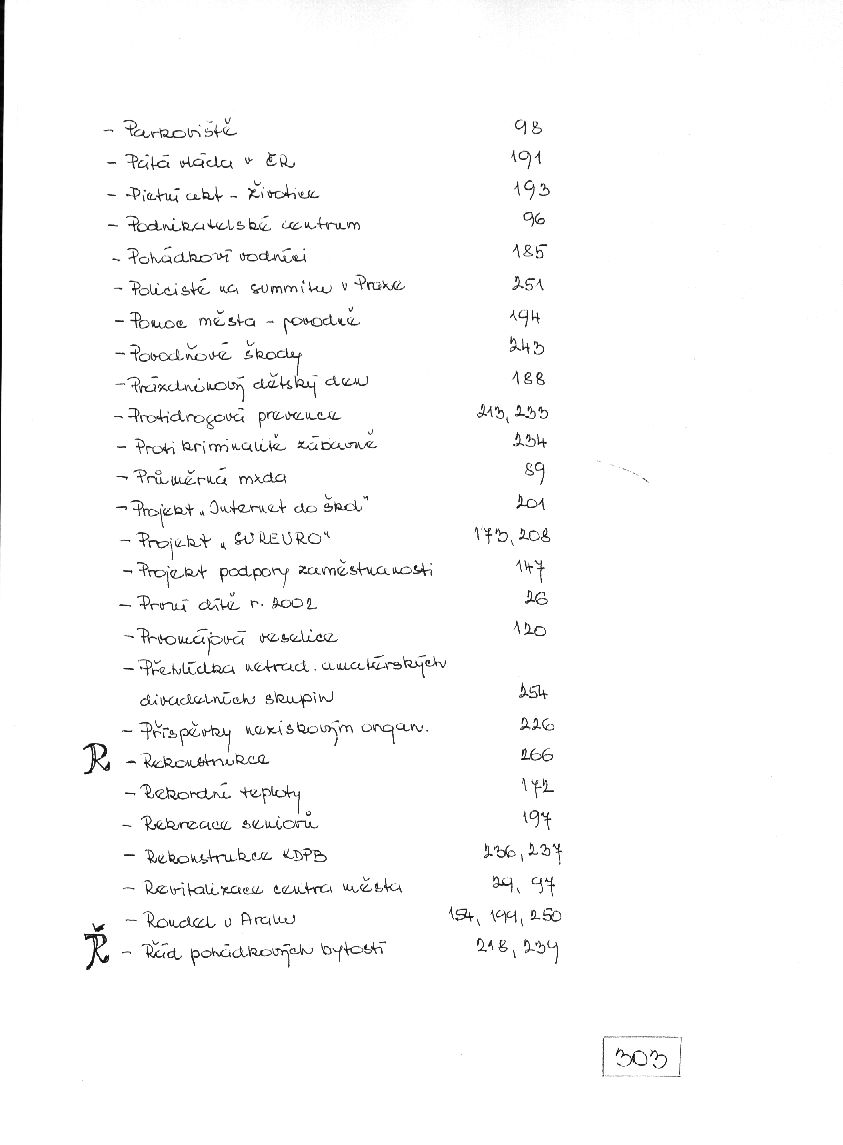 - Parkoviště 98
- Pátá vláda v ČR 191
- Pietní akt - Životice 193
- Podnikatelské centrum 96
- Pohádkoví vodníci 185
- Policisté na summitu v Praze 251
- Pomoc města - povodně 194
- Povodňové škody 243
- Prázdninový dětský den 188
- Protidrogová prevence 213, 233
- Proti kriminalitě zábavně 234
- Průměrná mzda 89
- Projekt „Internet do škol" 201
- Projekt „SUREURO" 173, 208
- Projekt podpory zaměstnanosti 147
- První dítě r. 2002 26
- Prvomájová veselice 120
- Přehlídka netrad. amatérských
divadelních skupin 254
- Příspěvky neziskovým organ. 226
R - Rekonstrukce 266
- Rekordní teploty 172
- Rekreace seniorů 197
- Rekonstrukce KDPB 236, 237
- Revitalizace centra města 29, 97
- Rondel u Aralu 154, 199, 250
Ř - Řád pohádkových bytostí 218, 239
303